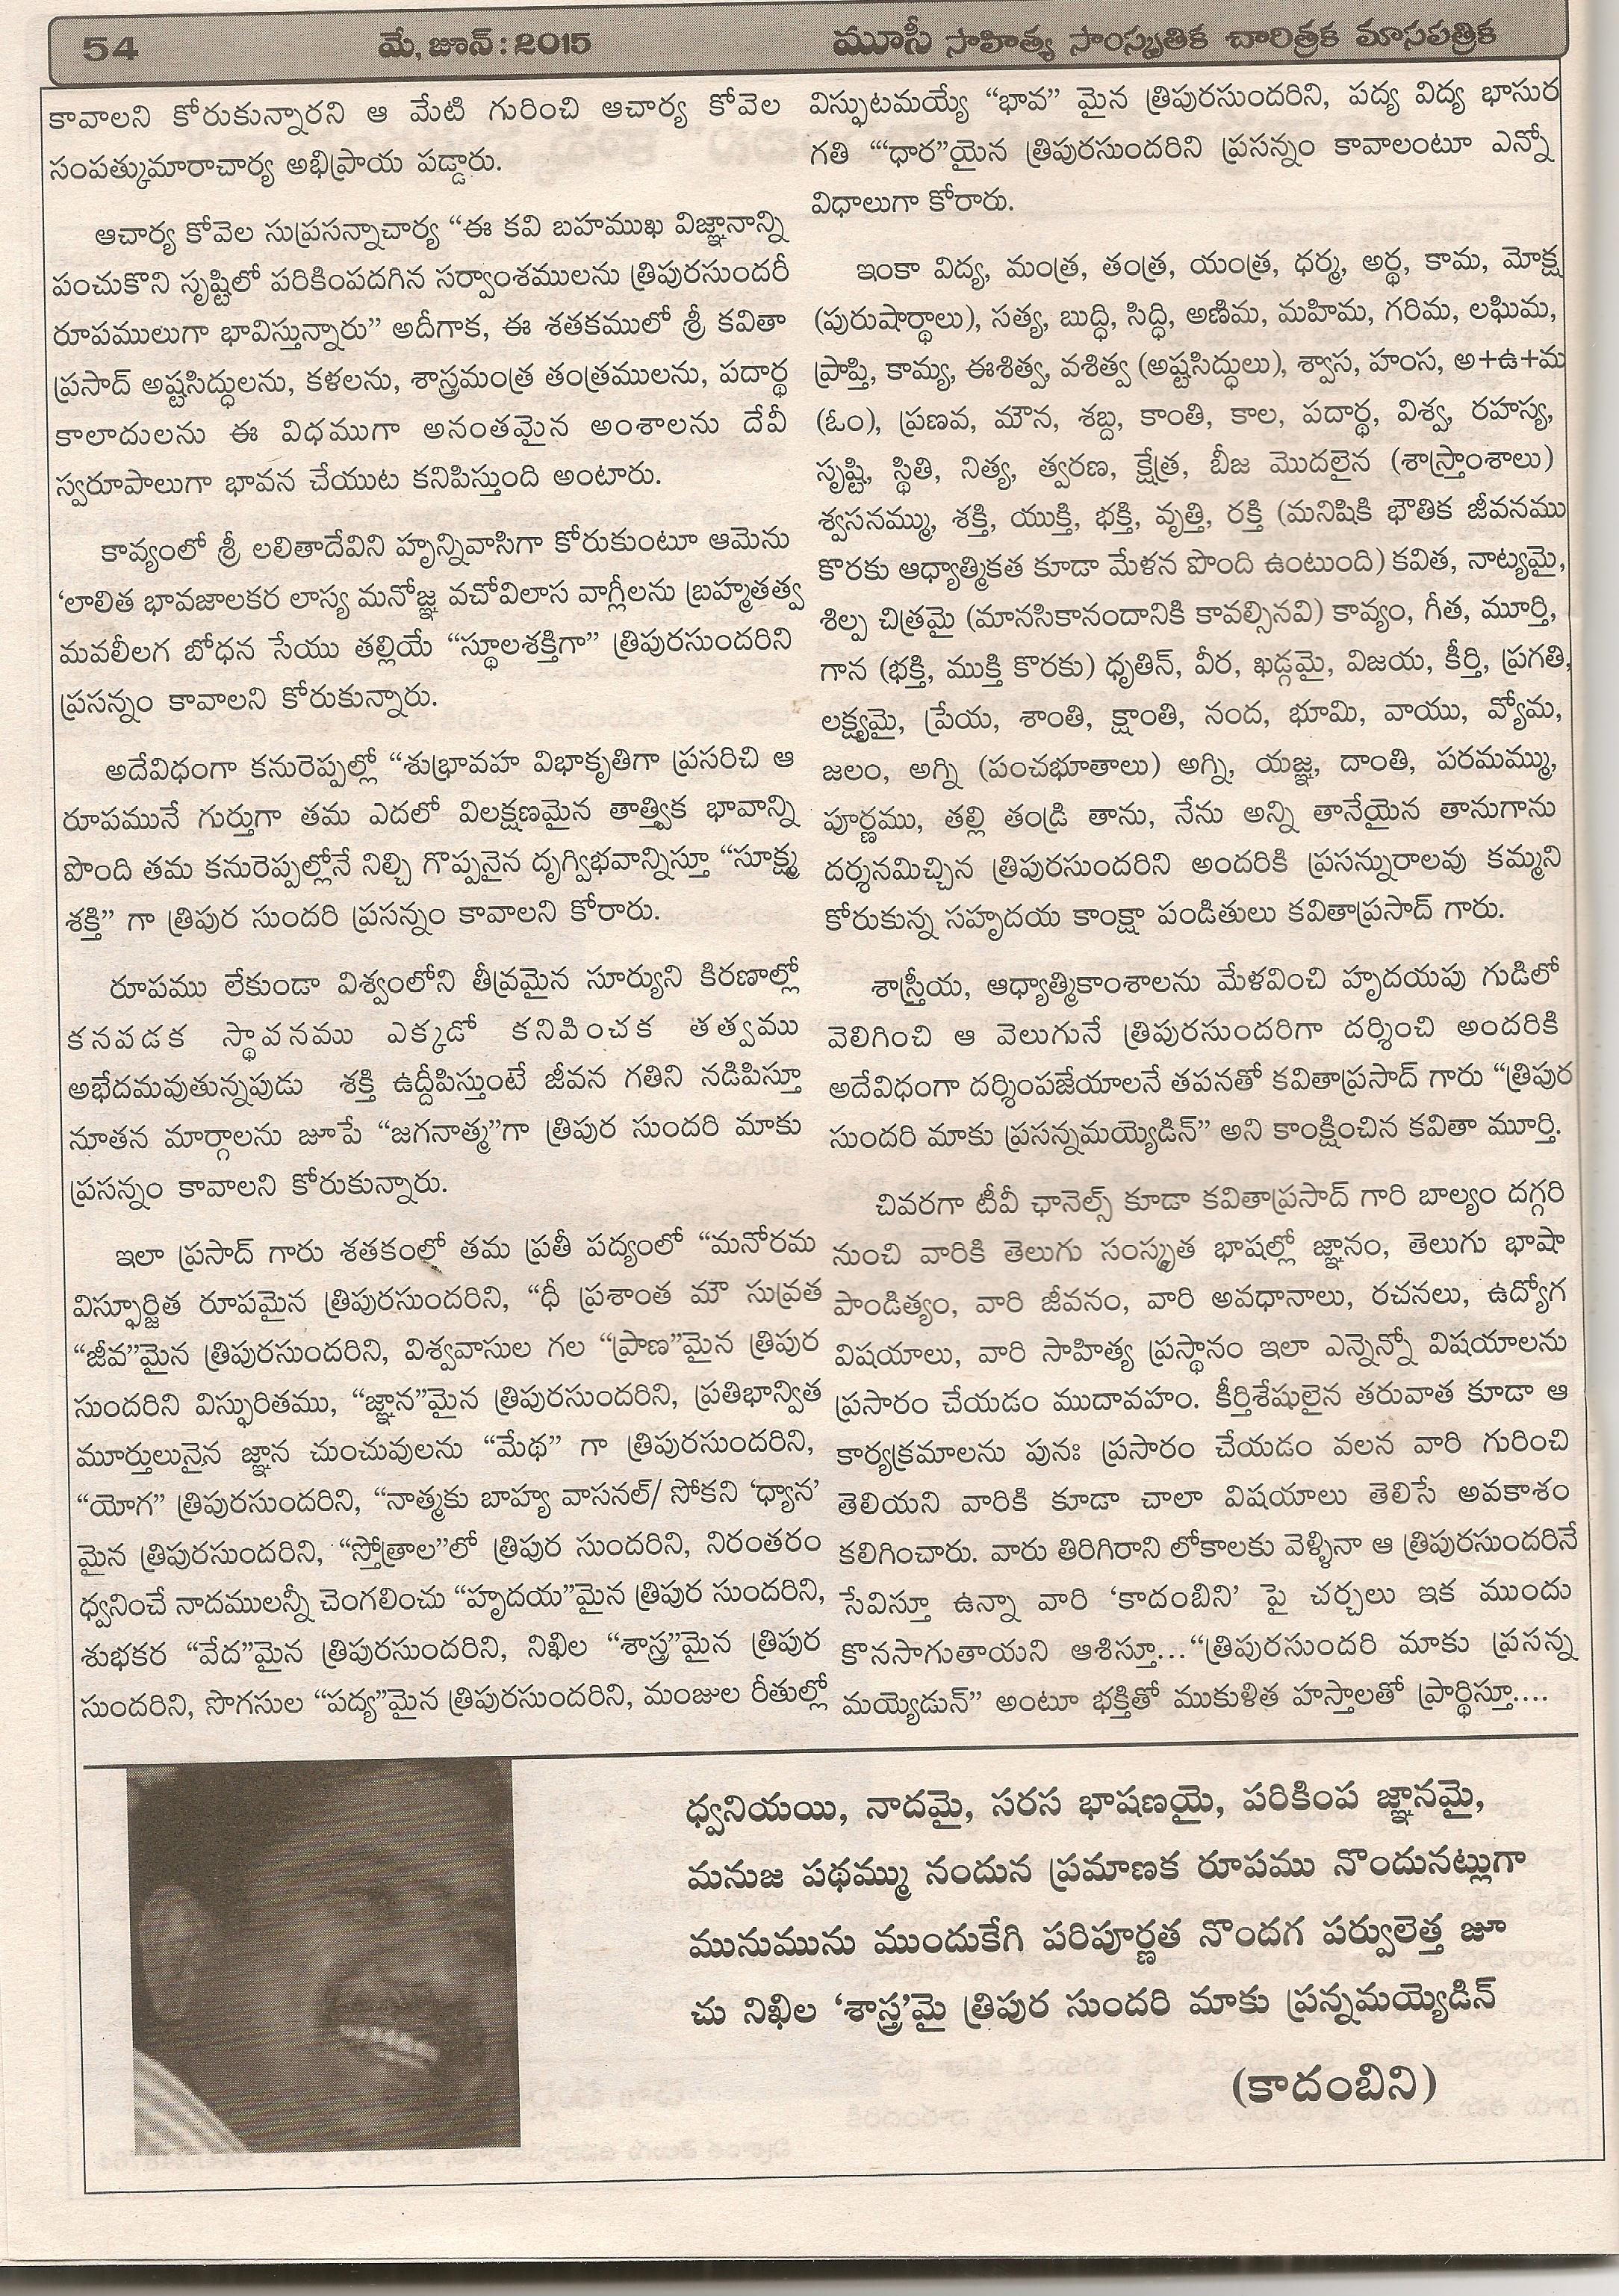 54 మే, జూన్ : 2015 మూసీ సాహిత్య సాంస్కృతిక చారిత్రక మాసపత్రిక
కావాలని కోరుకున్నారని ఆ మేటి గురించి ఆచార్య కోవెల
సంపత్కుమారాచార్య అభిప్రాయ పడ్డారు.
ఆచార్య కోవెల సుప్రసన్నాచార్య “ఈ కవి బహముఖ విజ్ఞానాన్ని
పంచుకొని సృష్టిలో పరికింపదగిన సర్వాంశములను త్రిపురసుందరీ
రూపములుగా భావిస్తున్నారు” అదీగాక, ఈ శతకములో శ్రీ కవితా
ప్రసాద్ అష్టసిద్ధులను, కళలను, శాస్త్రమంత్ర తంత్రములను, పదార్థ
కాలాదులను ఈ విధముగా అనంతమైన అంశాలను దేవీ
స్వరూపాలుగా భావన చేయుట కనిపిస్తుంది అంటారు.
కావ్యంలో శ్రీ లలితాదేవిని హృన్నివాసిగా కోరుకుంటూ ఆమెను
‘లాలిత భావజాలకర లాస్య మనోజ్ఞ వచోవిలాస వాగ్లీలను బ్రహ్మతత్వ
మవలీలగ బోధన సేయు తల్లియే “స్థూలశక్తిగా” త్రిపురసుందరిని
ప్రసన్నం కావాలని కోరుకున్నారు.
అదేవిధంగా కనురెప్పల్లో “శుభ్రావహ విభాకృతిగా ప్రసరిచి ఆ
రూపమునే గుర్తుగా తమ ఎదలో విలక్షణమైన తాత్త్విక భావాన్ని
పొంది తమ కనురెప్పల్లోనే నిల్చి గొప్పనైన దృగ్విభవాన్నిస్తూ “సూక్ష్మ
శక్తి” గా త్రిపుర సుందరి ప్రసన్నం కావాలని కోరారు.
రూపము లేకుండా విశ్వంలోని తీవ్రమైన సూర్యుని కిరణాల్లో
కనవడక స్థావనము ఎక్కడో కనివించక తత్వము
అభేదమవుతున్నపుడు శక్తి ఉద్దీపిస్తుంటే జీవన గతిని నడిపిస్తూ
నూతన మార్గాలను జూపే “జగనాత్మ”గా త్రిపుర సుందరి మాకు
ప్రసన్నం కావాలని కోరుకున్నారు.
ఇలా ప్రసాద్ గారు శతకంల్లో తమ ప్రతీ పద్యంలో “మనోరమ
విస్ఫూర్జిత రూపమైన త్రిపురసుందరిని, “ధీ ప్రశాంత మౌ సువ్రత
“జీవ”మైన త్రిపురసుందరిని, విశ్వవాసుల గల “ప్రాణ”మైన త్రిపుర
సుందరిని విస్ఫురితము, “జ్ఞాన”మైన త్రిపురసుందరిని, ప్రతిభాన్విత
మూర్తులునైన జ్ఞాన చుంచువులను “మేథ” గా త్రిపురసుందరిని,
“యోగ” త్రిపురసుందరిని, “నాత్మకు బాహ్య వాసనల్/ సోకని ‘ధ్యాన’
మైన త్రిపురసుందరిని, “స్తోత్రాల”లో త్రిపుర సుందరిని, నిరంతరం
ధ్వనించే నాదములన్నీ చెంగలించు “హృదయ”మైన త్రిపుర సుందరిని,
శుభకర “వేద”మైన త్రిపురసుందరిని, నిఖిల “శాస్త్ర”మైన త్రిపుర
సుందరిని, సొగసుల “పద్య”మైన త్రిపురసుందరిని, మంజుల రీతుల్లో
విస్ఫుటమయ్యే “భావ” మైన త్రిపురసుందరిని, పద్య విద్య భాసుర
గతి “‘ధార”యైన త్రిపురసుందరిని ప్రసన్నం కావాలంటూ ఎన్నో
విధాలుగా కోరారు.
ఇంకా విద్య, మంత్ర, తంత్ర, యంత్ర, ధర్మ, అర్థ, కామ, మోక్ష
(పురుషార్థాలు), సత్య, బుద్ధి, సిద్ధి, అణిమ, మహిమ, గరిమ, లఘిమ,
ప్రాప్తి, కామ్య, ఈశిత్వ, వశిత్వ (అష్టసిద్ధులు), శ్వాస, హంస, అ+ఉ+మ
(ఓం), ప్రణవ, మౌన, శబ్ద, కాంతి, కాల, పదార్థ, విశ్వ, రహస్య,
సృష్టి, స్థితి, నిత్య, త్వరణ, క్షేత్ర, బీజ మొదలైన (శాస్త్రాంశాలు)
శ్వసనమ్ము, శక్తి, యుక్తి, భక్తి, వృత్తి, రక్తి (మనిషికి భౌతిక జీవనము
కొరకు ఆధ్యాత్మికత కూడా మేళన పొంది ఉంటుంది) కవిత, నాట్యమై,
శిల్ప చిత్రమై (మానసికానందానికి కావల్సినవి) కావ్యం, గీత, మూర్తి,
గాన (భక్తి, ముక్తి కొరకు) ధృతిన్, వీర, ఖడ్గమై, విజయ, కీర్తి, ప్రగతి,
లక్ష్యమై, ప్రేయ, శాంతి, క్షాంతి, నంద, భూమి, వాయు, వ్యోమ,
జలం, అగ్ని (పంచభూతాలు) అగ్ని, యజ్ఞ, దాంతి, పరమమ్ము,
పూర్ణము, తల్లి తండ్రి తాను, నేను అన్ని తానేయైన తానుగాను
దర్శనమిచ్చిన త్రిపురసుందరిని అందరికి ప్రసన్నురాలవు కమ్మని
కోరుకున్న సహృదయ కాంక్షా పండితులు కవితాప్రసాద్ గారు.
శాస్త్రీయ, ఆధ్యాత్మికాంశాలను మేళవించి హృదయపు గుడిలో
వెలిగించి ఆ వెలుగునే త్రిపురసుందరిగా దర్శించి అందరికి
అదేవిధంగా దర్శింపజేయాలనే తపనతో కవితాప్రసాద్ గారు “త్రిపుర
సుందరి మాకు ప్రసన్నమయ్యెడిన్” అని కాంక్షించిన కవితా మూర్తి.
చివరగా టీవీ ఛానెల్స్ కూడా కవితాప్రసాద్ గారి బాల్యం దగ్గరి
నుంచి వారికి తెలుగు సంస్కృత భాషల్లో జ్ఞానం, తెలుగు భాషా
పాండిత్యం, వారి జీవనం, వారి అవధానాలు, రచనలు, ఉద్యోగ
విషయాలు, వారి సాహిత్య ప్రస్థానం ఇలా ఎన్నెన్నో విషయాలను
ప్రసారం చేయడం ముదావహం. కీర్తిశేషులైన తరువాత కూడా ఆ
కార్యక్రమాలను పునః ప్రసారం చేయడం వలన వారి గురించి
తెలియని వారికి కూడా చాలా విషయాలు తెలిసే అవకాశం
కలిగించారు. వారు తిరిగిరాని లోకాలకు వెళ్ళినా ఆ త్రిపురసుందరినే
సేవిస్తూ ఉన్నా వారి ‘కాదంబిని’ పై చర్చలు ఇక ముందు
కొనసాగుతాయని ఆశిస్తూ...“త్రిపురసుందరి మాకు ప్రసన్న
మయ్యెడున్” అంటూ భక్తితో ముకుళిత హస్తాలతో ప్రార్థిస్తూ....
ధ్వనియయి, నాదమై, సరస భాషణయై, పరికింప జ్ఞానమై,
మనుజ పథమ్ము నందున ప్రమాణక రూపము నొందునట్లుగా
మునుమును ముందుకేగి పరిపూర్ణత నొందగ పర్వులెత్త జూ
చు నిఖిల ‘శాస్త్ర’మై త్రిపుర సుందరి మాకు ప్రన్నమయ్యెడిన్
(కాదంబిని)